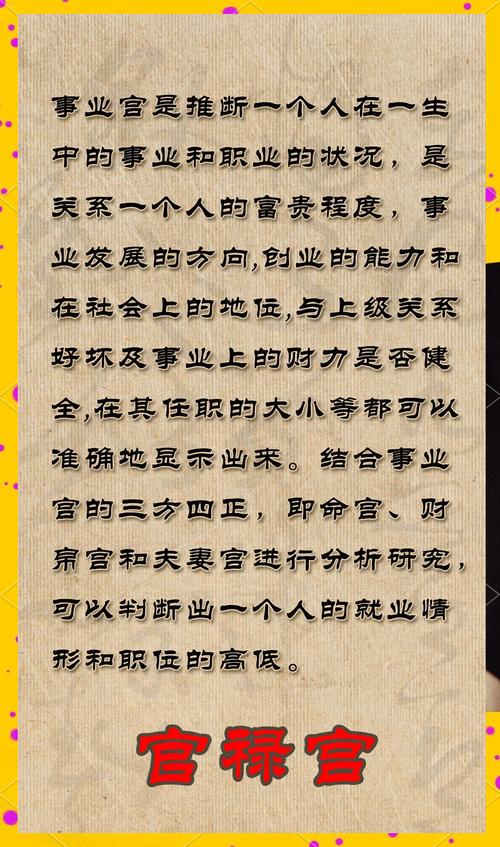 事业宫是推断一个人在一生
中的事业和职业的状况，是
关系一个人的富贵程度，事
业发展的方向,创业的能力和
在社会上的地位,与上级关系
好坏及事业上的财力是否健
全,在其任职的大小等都可以
准确地显示出来。结合事业
宫的三方四正，即命宫、财
帛宫和夫妻宫进行分析研究，
可以判断出一个人的就业情
形和职位的高低。
官禄宫